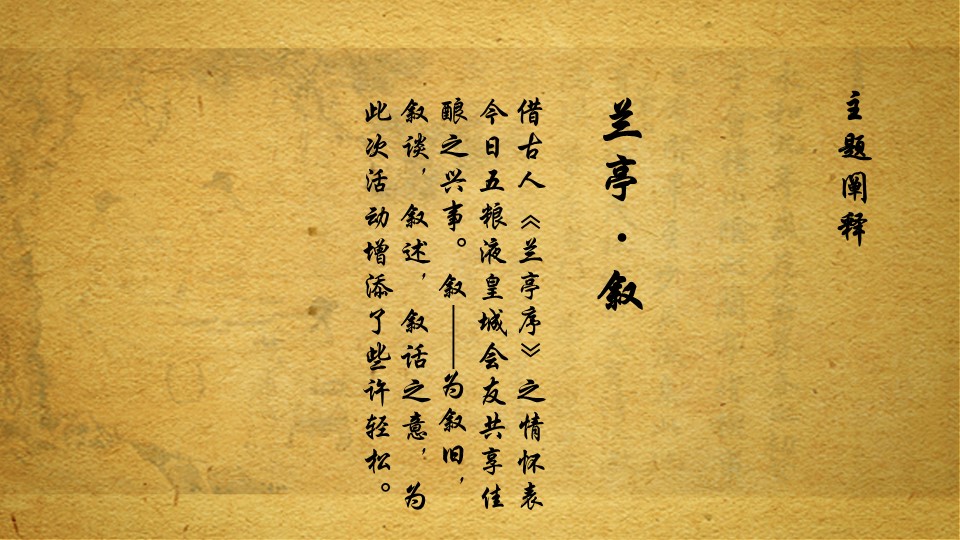 主题阐释
兰亭·叙
借古人《兰亭序》之情怀表
今日五粮液皇城会友共享佳
酿之兴事。叙——为叙旧，
叙谈，叙述，叙话之意，为
此次活动增添了些许轻松。